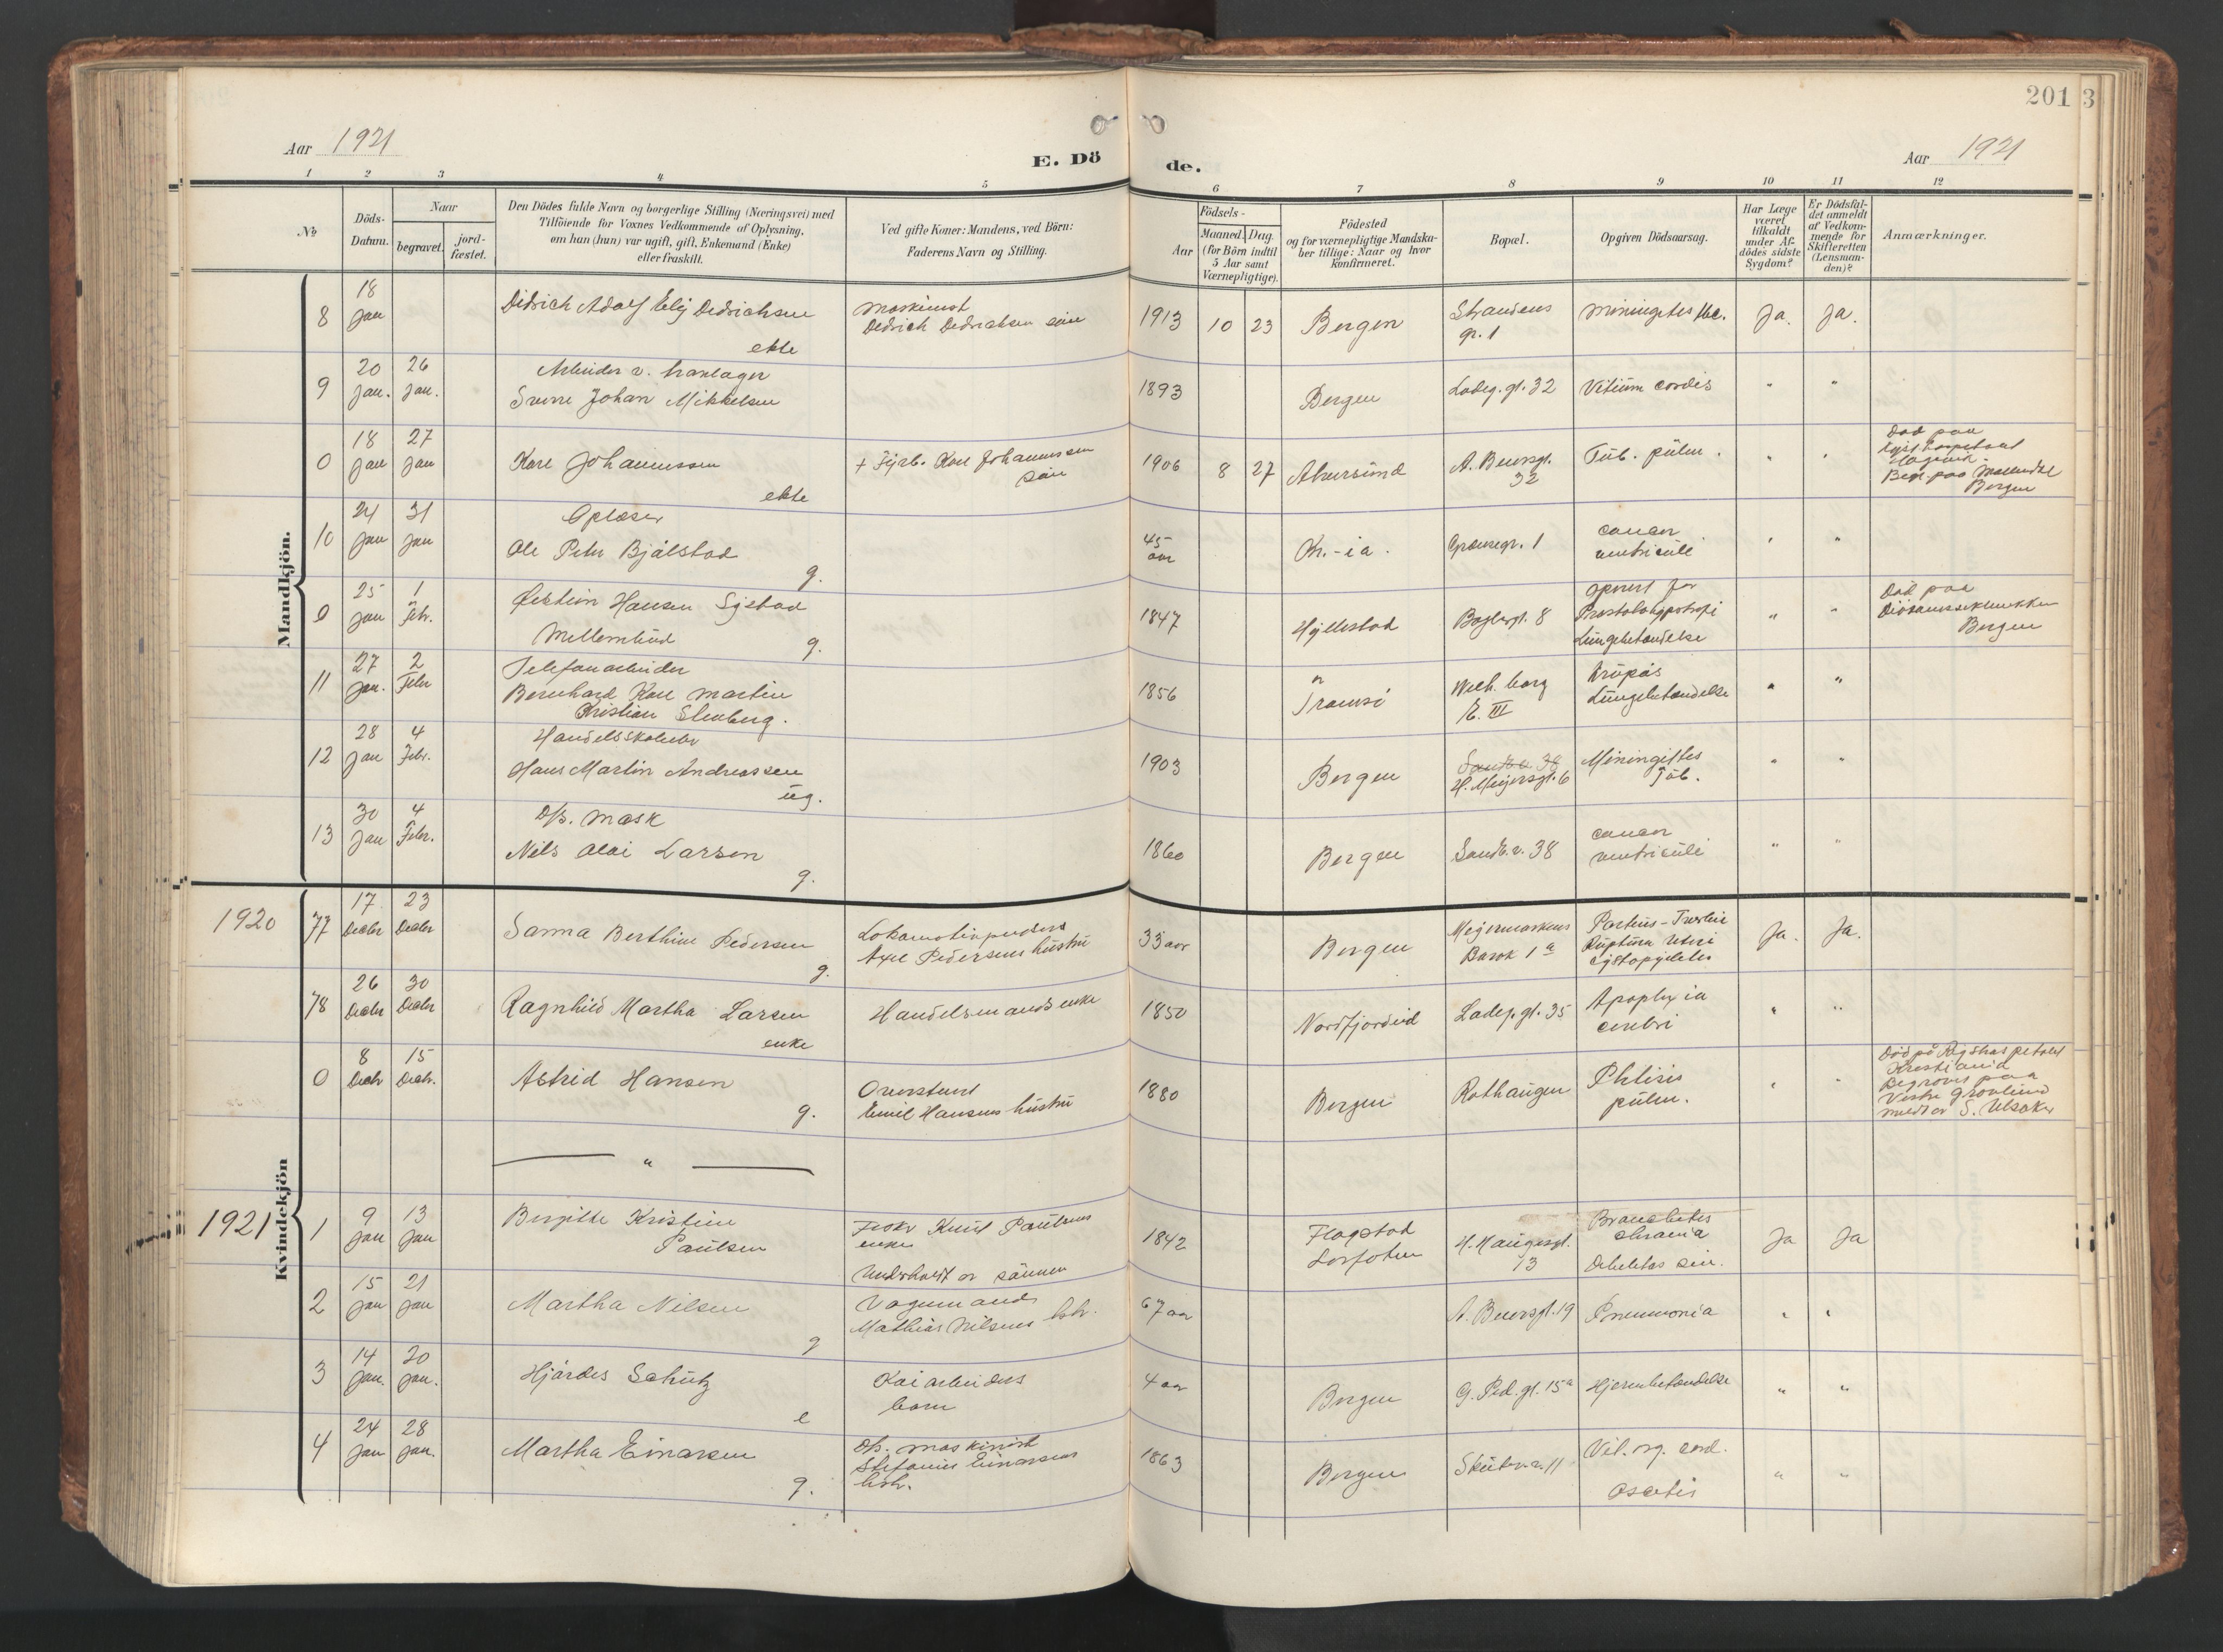 Aar 1921
E. Dö
de.
Aar 1921
201
3
1 2 3 4 5 6 7 8 9 10 11 12
No
Döds-Datum.
Naar
begravet.
jord-fæstet.
Den Dödes fulde Navn og borgerlige Stilling (Næringsvei) med
Tilföiende for Voxnes Vedkommende af Oplysning,
om han (hun) var ugift, gift, Enkemand (Enke)
eller fraskilt.
Ved gifte Koner: Mandens, ved Börn:
Faderens Navn og Stilling.
Födsels-
Aar
Maaned. Dag.
(for Börn indtil
5 Aar samt
Værnepligtige).
Födested
og for værnepligtige Mandska-
ber tillige: Naar og hvor
konfirmeret.
Bopæl.
Opgiven Dödsaarsag.
Har Læge
været
tilkaldt
under Af-
dödes sidste
Sygdom?
Er Dödsfal-
det anmeldt
af Vedkom-
mende for
Skifteretten
(Lensman-
den)?
Anmærkninger.
Mandkjön.
8
18 Jan
Didrich Adolf Dedrichsen
ekte
Maskinist
Dedrich Dedrichsen sön
1913 10 23
Bergen
Strandens
gr. 1
Ja. Ja.
9
20 Jan. 26 Jan.
Arbeider v.
Sverre Johan Mikkelsen
1893
Bergen
Ladeg. gt. 32
Vitium cordis
" "
0
18 Jan 27 Jan
Kare Johannessen
ekte
+ Karl Johannessen
sön
1906 8 27
Alversund
A. Beersgt.
32
Tub. pulm.
" "
Död paa
Kysthospitalet
Hagevik.
Begr. paa Möllendal
Bergen
10
24 Jan 31 Jan
Oplæser
Ole Peter Bjålstad
g.
45 aar
Kr.-ia.
Grænsegr. 1
cancer
ventriculi
" "
0
25 Jan 1 Febr.
Hansen Systad
Mellemlund
g.
1847
Hyllestad
Baglergt. 8
operert for
Prostatahypertrofi
Lungebetændelse
" "
Död paa
Diakonisseklinikken
Bergen
11
27 Jan. 2 Febr
Telefonarbeider
Bernhard Karl Martin
Kristian Stenberg.
1856
Tromsö
Welh. borg
E. III
krupös
Lungebetændelse
" "
12
28 Jan 4 Febr.
Handelsskoleelev
Hans Martin Andreassen
ug.
1903
Bergen
H. Meyersgt. 6
Meningittes
Tub.
" "
13
30 Jan 4 Febr.
D/s. mask
Nils Olai Larsen
g.
1860
Bergen
Sandv. v. 38
cancer
ventriculi
" "
Kvindekjön
1920
77
17 Decbr 23 Decbr
Sanna Berthine Pedersen
g.
Lokomotivpudsers
Axel Pedersens hustru
33 aar
Bergen
Meyermarkens
Barak 1a
Partus-
Ruptura Uteri
Cystopyelitis
Ja. Ja.
78
26 Decbr 30 Decbr
Ragnhild Martha Larsen
enke
Handelsmands enke
1850
Nordfjordeid
Ladeg. gt. 35
Apoplexia
cerebri
" "
0
8 Decbr 15 Decbr.
Astrid Hansen
g.
Emil Hansens hustru
1880
Bergen
Rothaugen
Phtisis
pulm.
" "
Död på Rigshospitalet
Kristiania
Begraves paa
Vestre Gravlund
meldt av S. Ulsaker
"
1921
1
9 Jan 13 Jan
Birgitte Kristine
Paulsen
Fisker Knut Paulsens
enke
Underholdt av sönnen
1842
Flagstad
Lofoten
H. Haugesgt.
13
Bronchitis
chronica
Debilitas sen.
Ja Ja
2
15 Jan 21 Jan
Martha Nilsen
g
Vognmands
Mathias Nilsens hstr.
67 aar
A. Beersgt. 19
Pneumonia
" "
3
14 Jan. 20 Jan.
Hjördes Schütz
e
Kaiarbeiders
barn
4 aar
Bergen
G. Ped. gt. 15a
Hjernebetændelse
" "
4
24 Jan 28 Jan.
Martha Einarsen
g.
D/s. maskinist
Stefanius Einarsens
hstr.
1863
Bergen
Skutev. v. 11
Vit. org. cord.
Ascitis
" "